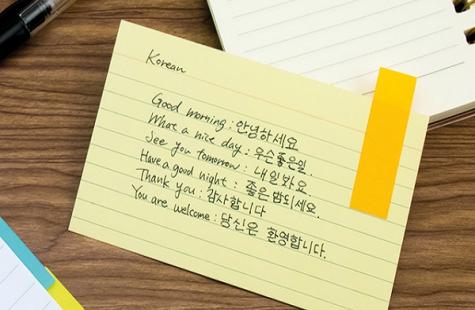 Korean
Good morning : 안녕하세요
What a nice day : 우수좋은일.
See you tomorrow : 내일봐요
Have a good night : 좋은밤되세요.
Thank you : 감사합니다
You are welcome : 당신은 환영합니다.